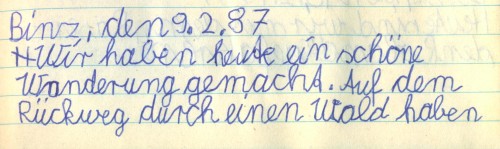 Binz, den 9.2.87
Wir haben heute ein schöne
Wanderung gemacht. Auf dem
Rückweg durch einen Wald haben